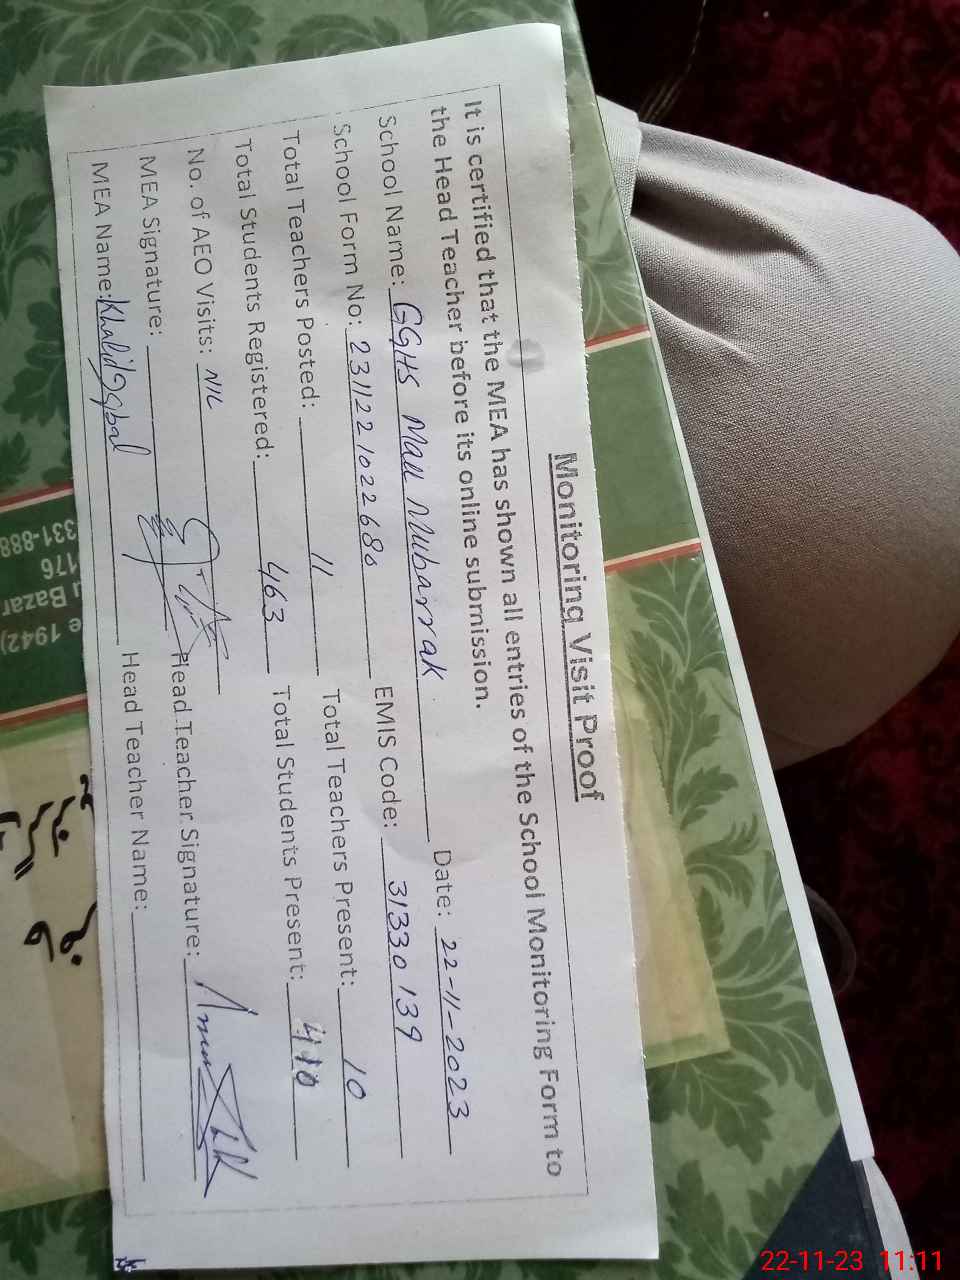 Monitoring Visit Proof
It is certified that the MEA has shown all entries of the School Monitoring Form to
the Head Teacher before its online submission.
School Name: GGHS Mall Mubarrak Date: 22-11-2023
School Form No: 2311221022680 EMIS Code: 31330139
Total Teachers Posted: 11 Total Teachers Present: 10
Total Students Registered: 463 Total Students Present: 410
No. of AEO Visits: NIL
MEA Signature: Head Teacher Signature:
MEA Name: Khalid Iqbal Head Teacher Name:
e 1942)
u Bazar
176
331-888
22-11-23 11:11